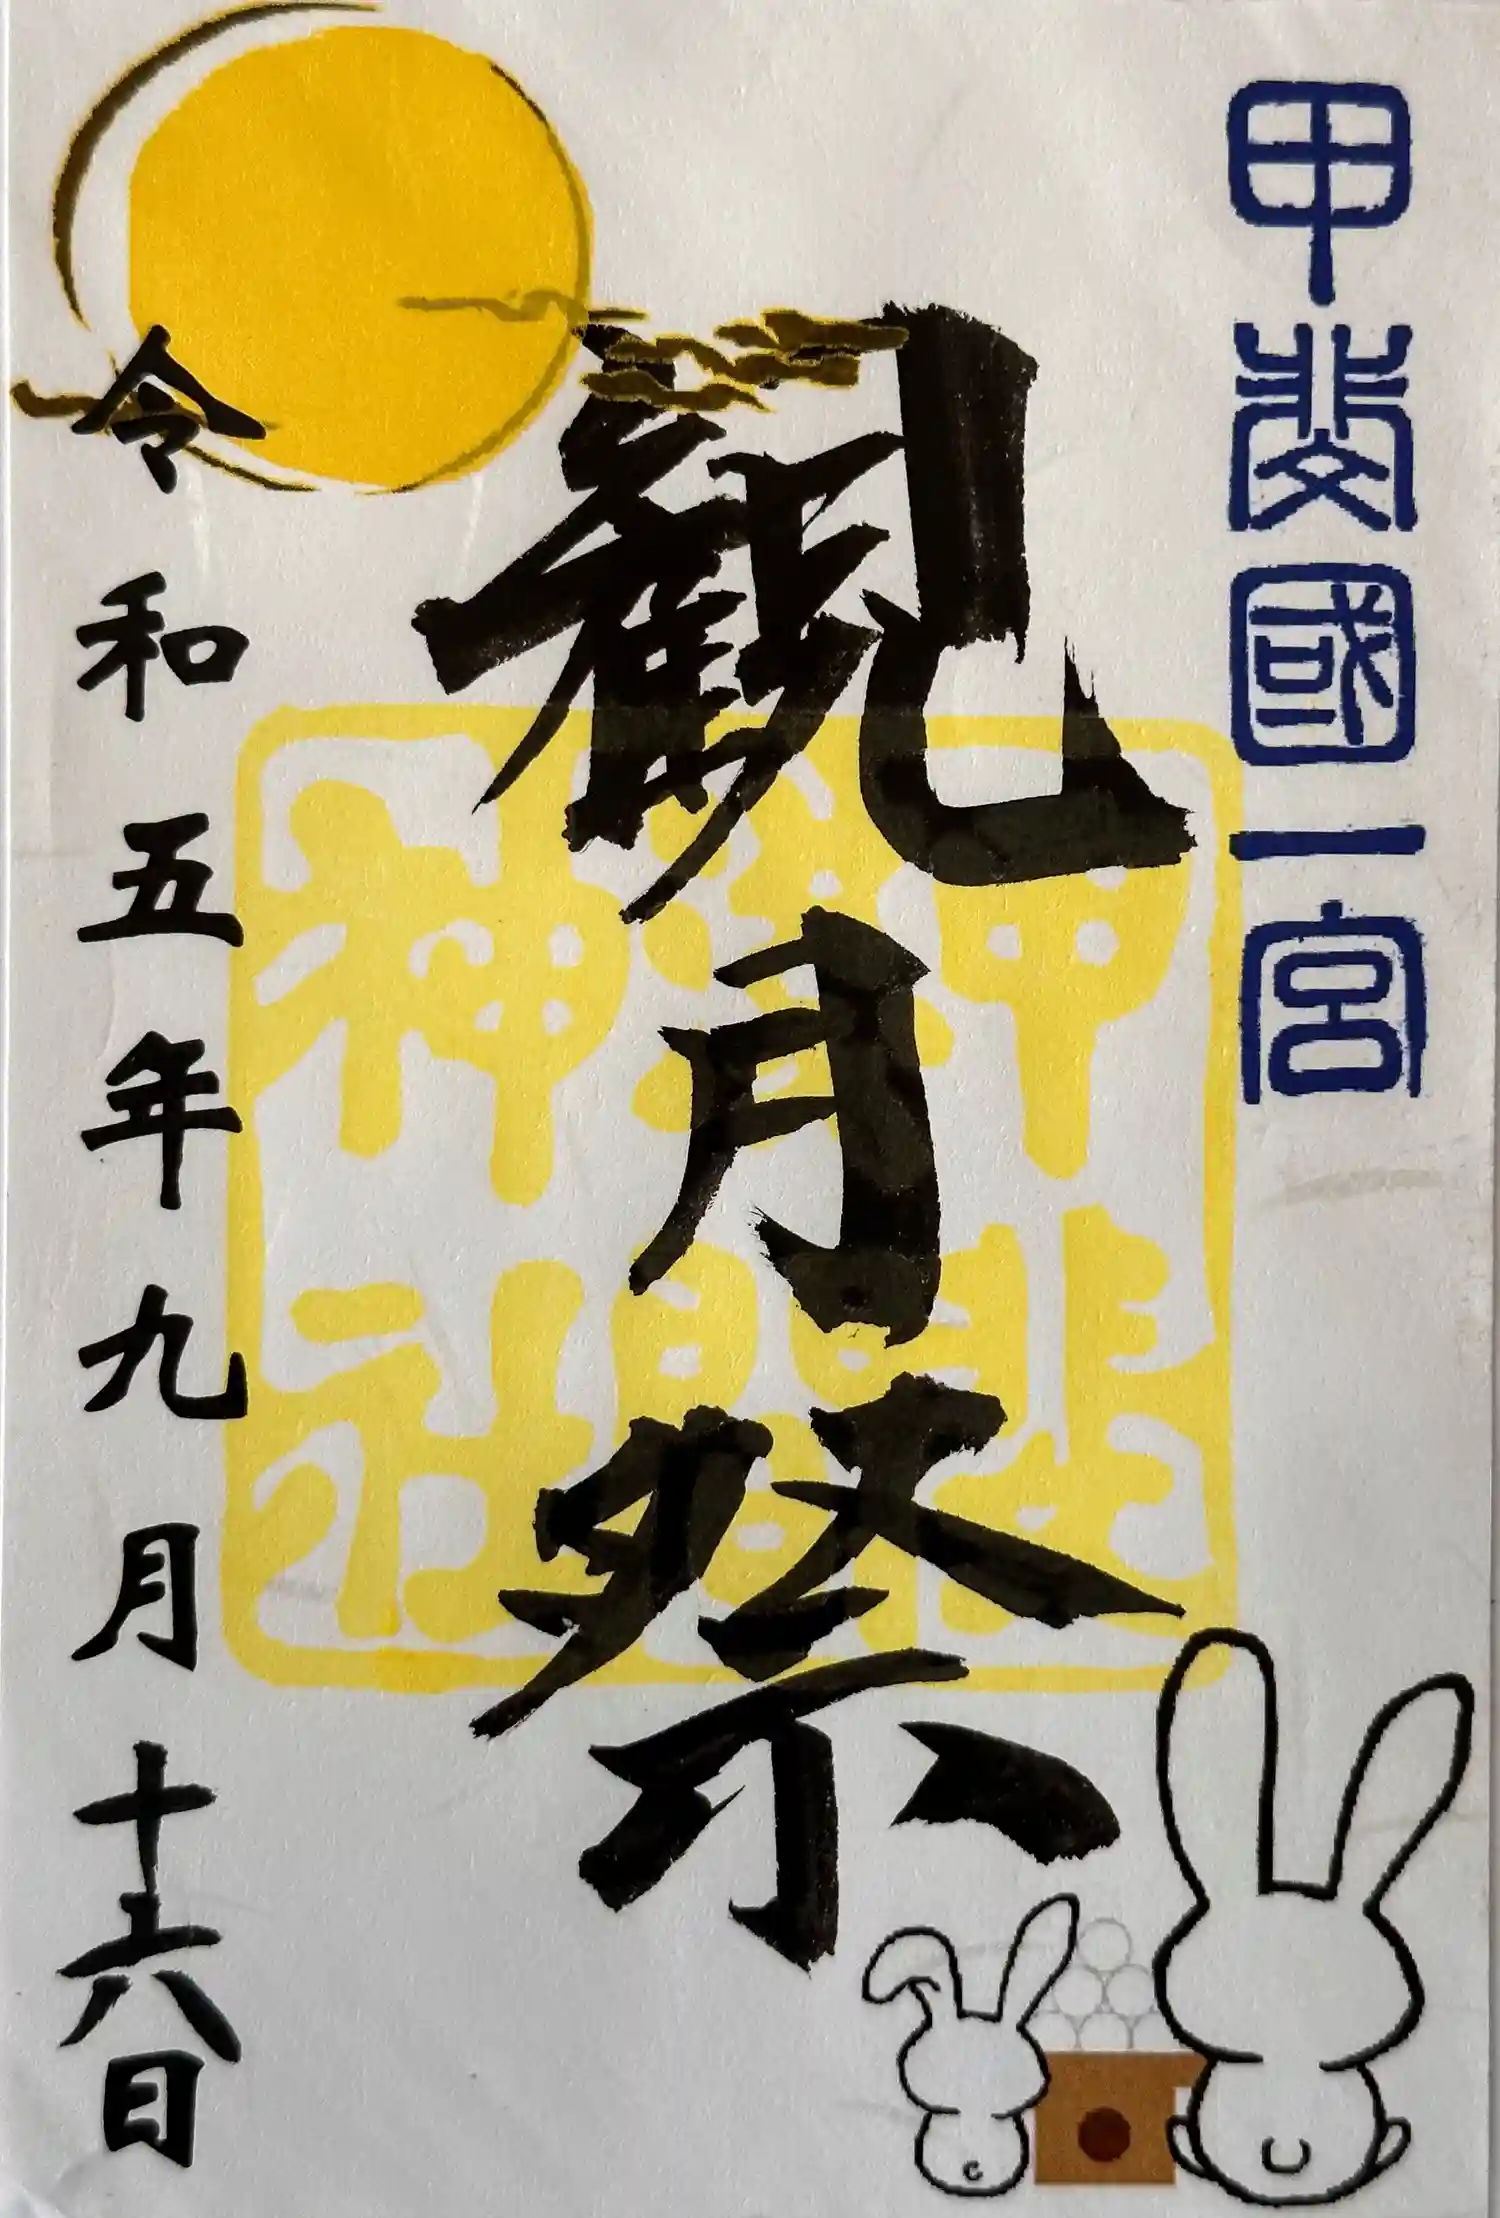 甲斐國一宮
観月祭
甲斐
間
神社
令和五年九月十六日